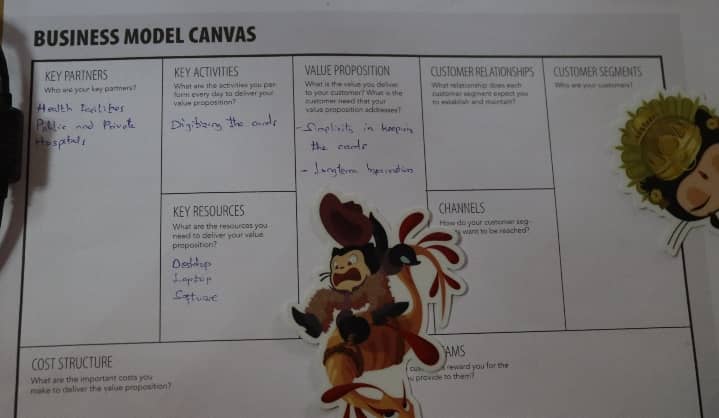 BUSINESS MODEL CANVAS
KEY PARTNERS
Who are your key partners?
Health
Public and Private
Hospitals
KEY ACTIVITIES
What are the activities you per-
form every day to deliver your
value proposition?
Digitizing the cards
KEY RESOURCES
What are the resources you
need to deliver your value
proposition?
Desktop
Laptop
Software
VALUE PROPOSITION
What is the value you deliver
to your customer? What is the
customer need that your
value proposition addresses?
- Simplicity in keeping
the cards
- Longterm
CUSTOMER RELATIONSHIPS
What relationship does each
customer segment expect you
to establish and maintain?
CHANNELS
How do your customer seg-
want to be reached?
CUSTOMER SEGMENTS
Who are your customers?
COST STRUCTURE
What are the important costs you
make to deliver the value proposition?
AMS
reward you for the
provide to them?